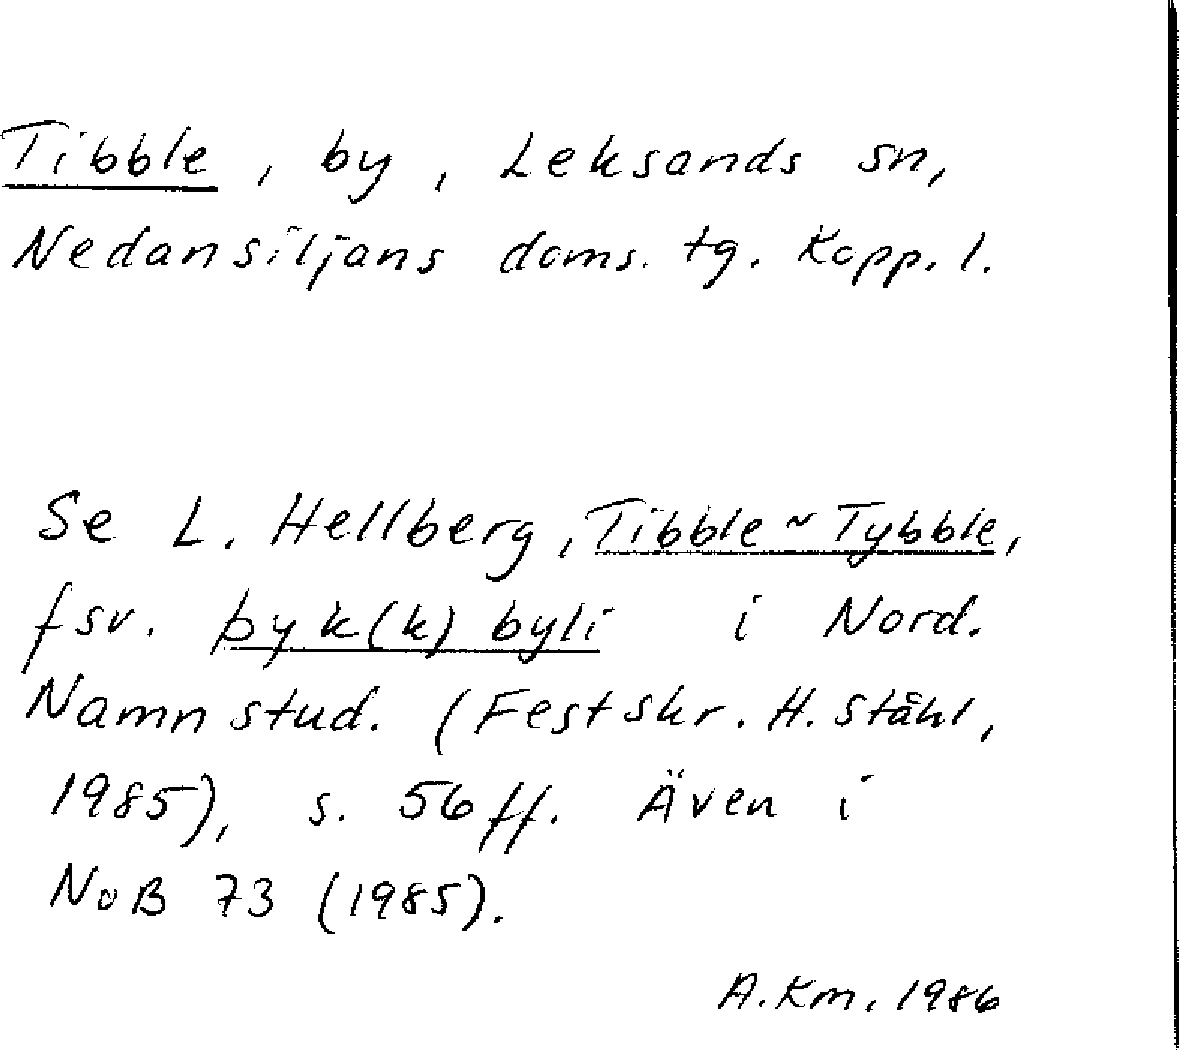 Tibble, by, Leksands sn,
Nedansiljans doms. tg. Kopp. l.
Se L. Hellberg, Tibble ~ Tybble,
fsv. þyk(k)byli i Nord.
Namnstud. (Festskr. H. Ståhl,
1985), s. 56 ff. Även i
NoB 73 (1985).
A. Km. 1986